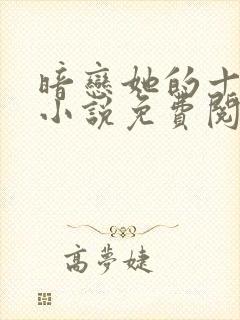 暗戀她的十
小說免費閱
高夢婕